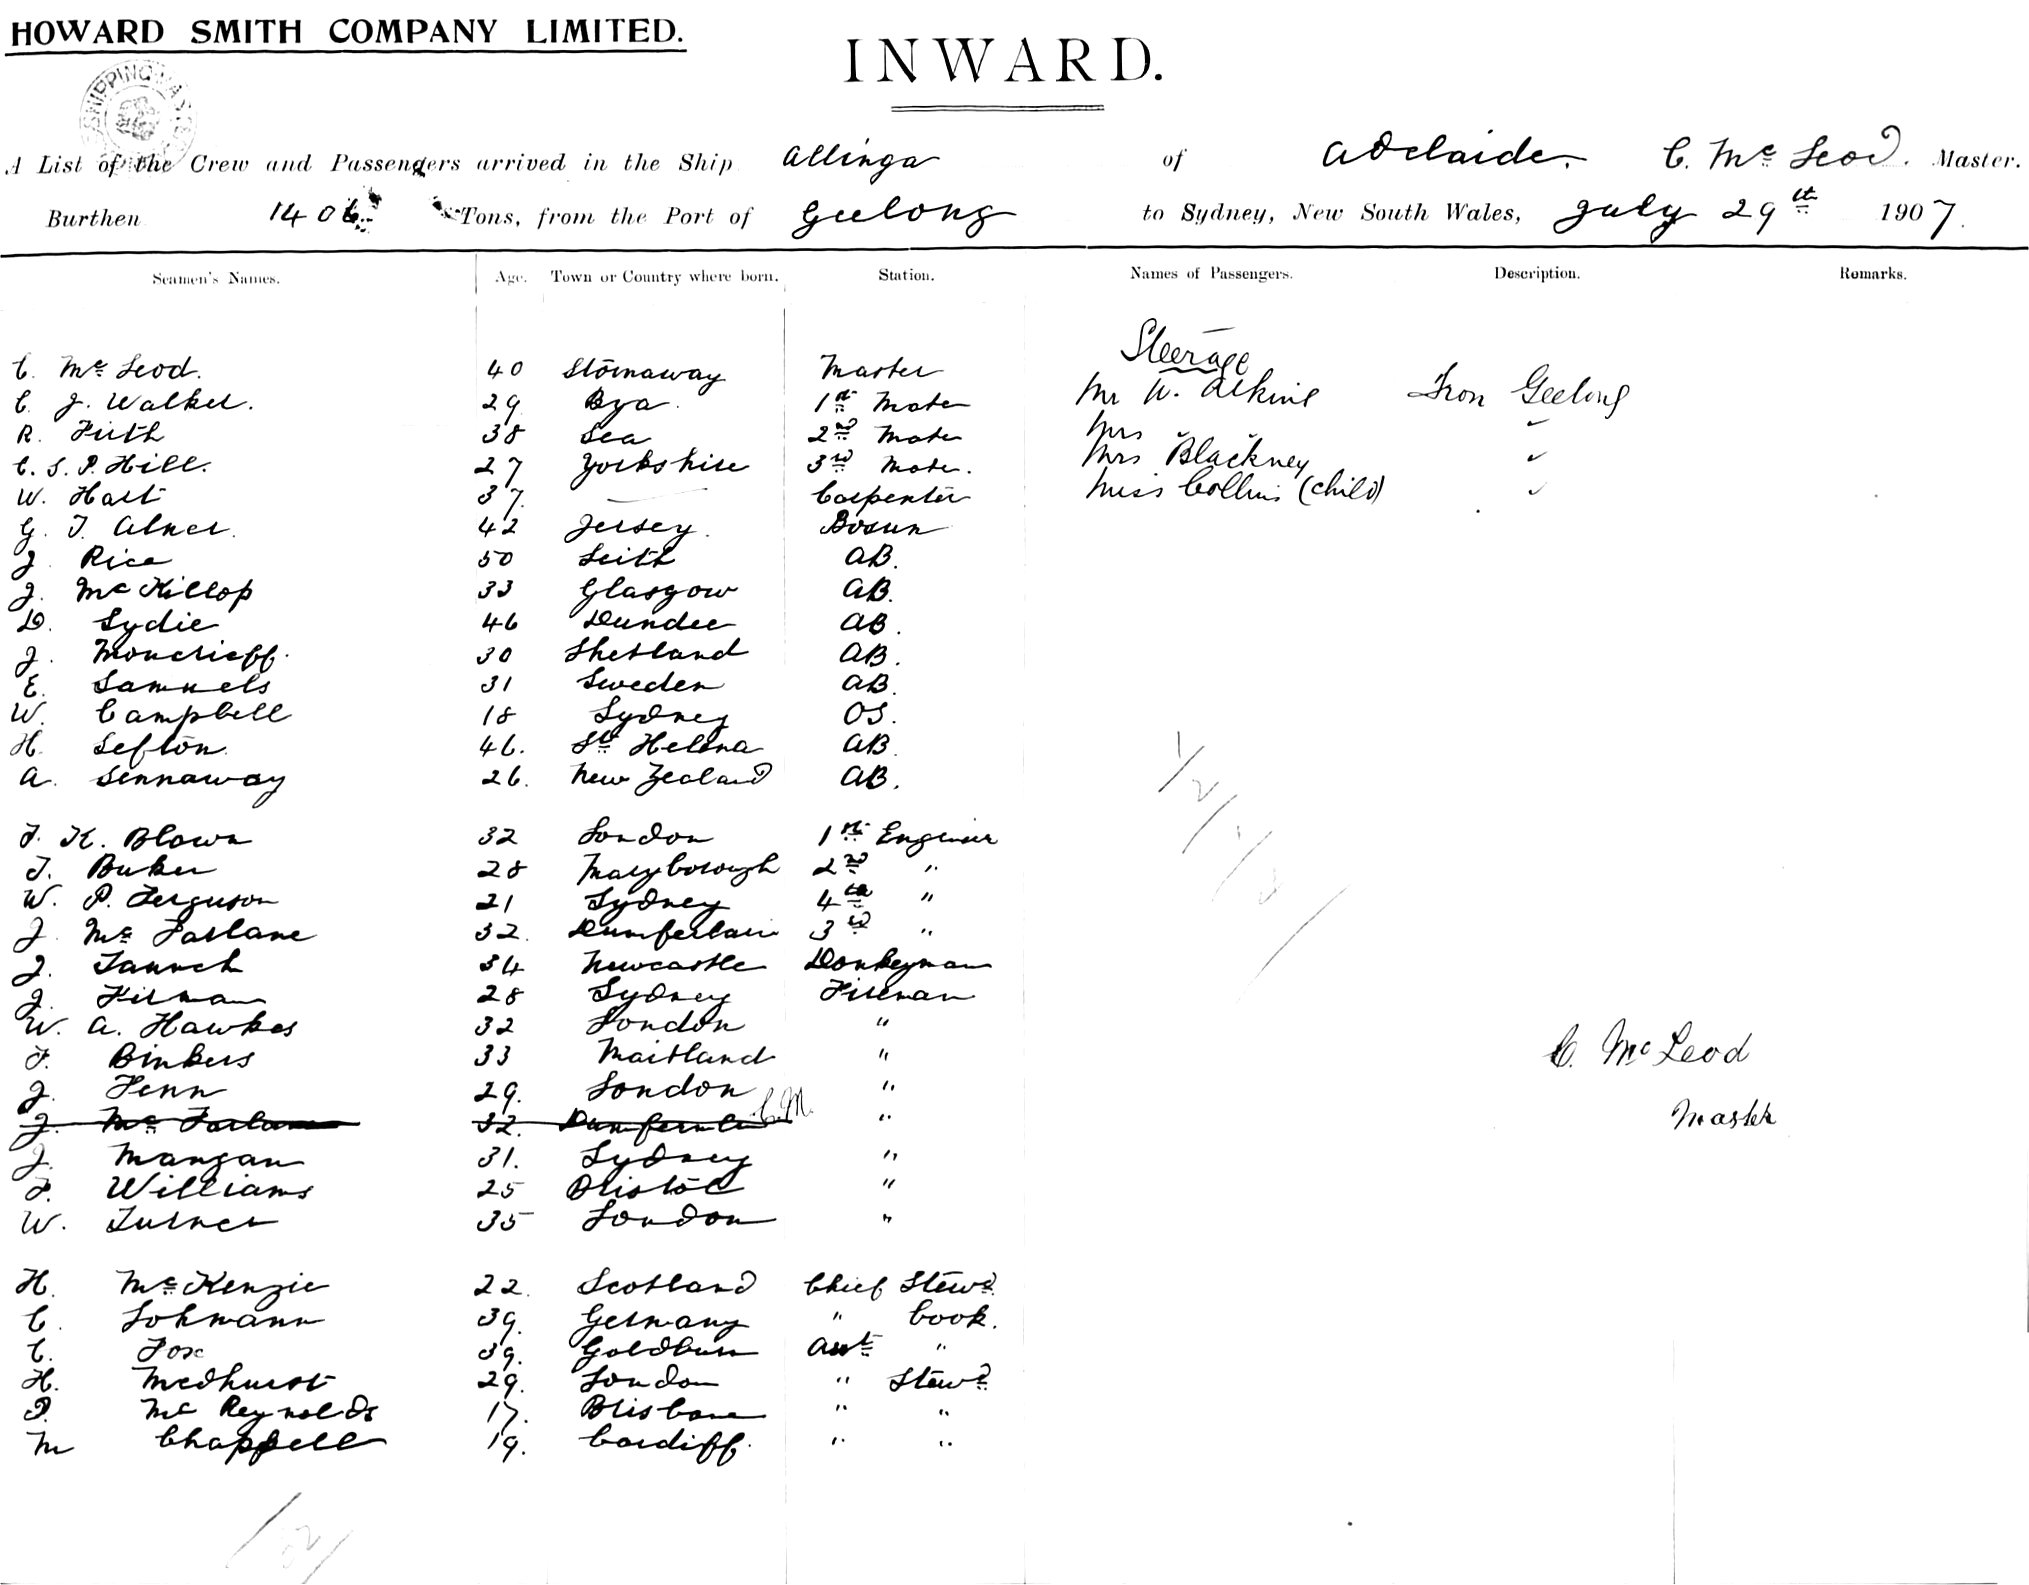 HOWARD SMITH COMPANY LIMITED.
INWARD.
A List of the Crew and Passengers arrived in the Ship Allinga of Adelaide. C. Mc Leod. Master.
Burthen 1406 Tons, from the Port of Geelong to Sydney, New South Wales, July 29th 1907.
Seamen's Names. Age. Town or Country where born. Station. Names of Passengers. Description. Remarks.
Steerage
C. Mc Leod. 40 Stornaway Master Mr W. Atkins From Geelong
C. J. Walker. 29 1st Mate Mrs " "
R. Firth 38 Sea 2nd Mate Mrs Blackney "
C. S. P. Hill. 27 Yorkshire 3rd Mate. Miss Collins (child) "
W. Hart 37. — Carpenter
G. T. Alner. 42 Jersey. Bosun
J. Rice 50 Leith AB.
J. Mc Killop 33 Glasgow AB.
D. Lydie 46 Dundee AB.
J. Moncrieff. 30 Shetland AB.
E. Samuels 31 Sweden AB.
W. Campbell 18 Sydney OS.
H. Sefton. 46. St Helena AB.
A. Sennaway 26. New Zealand AB.
F. K. Blown 32 London 1st Engineer
T. Baker 28 Maryborough 2nd "
W. P. Ferguson 21 Sydney 4th "
J. Mc Farlane 32. 3rd "
J. 34 Newcastle Donkeyman
J. Kirman 28 Sydney Fireman
W. A. Hawkes 32 London "
F. Binkers 33 Maitland "
J. Fenn 29. London "
J. Mc Farlane 32. Dumfernlin C.M. "
J. Mangan 31. Sydney "
F. Williams 25 Bristol "
W. Turner 35 London "
C. McLeod
Master
H. Mc Kenzie 22. Scotland Chief Stewd.
C. Lohmann 39. Germany " Cook.
C. Fox 39. Goldburn Asst "
H. Medhurst 29. London " Stewd
P. Mc Reynolds 17. Brisbane " "
M Chappell 19. Cardiff. " "